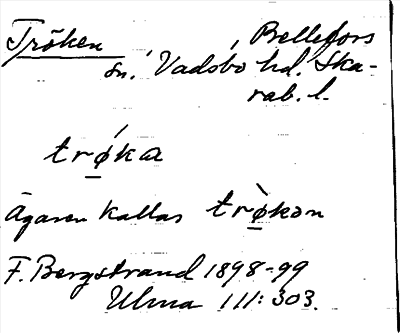 Tröken, Bellefors
sn. Vadsbo hd. Ska-
rab. l.
trø̲ka
Ägaren kallas trø̲̀kən
F. Bergstrand 1898-99
Ulma 111:303.